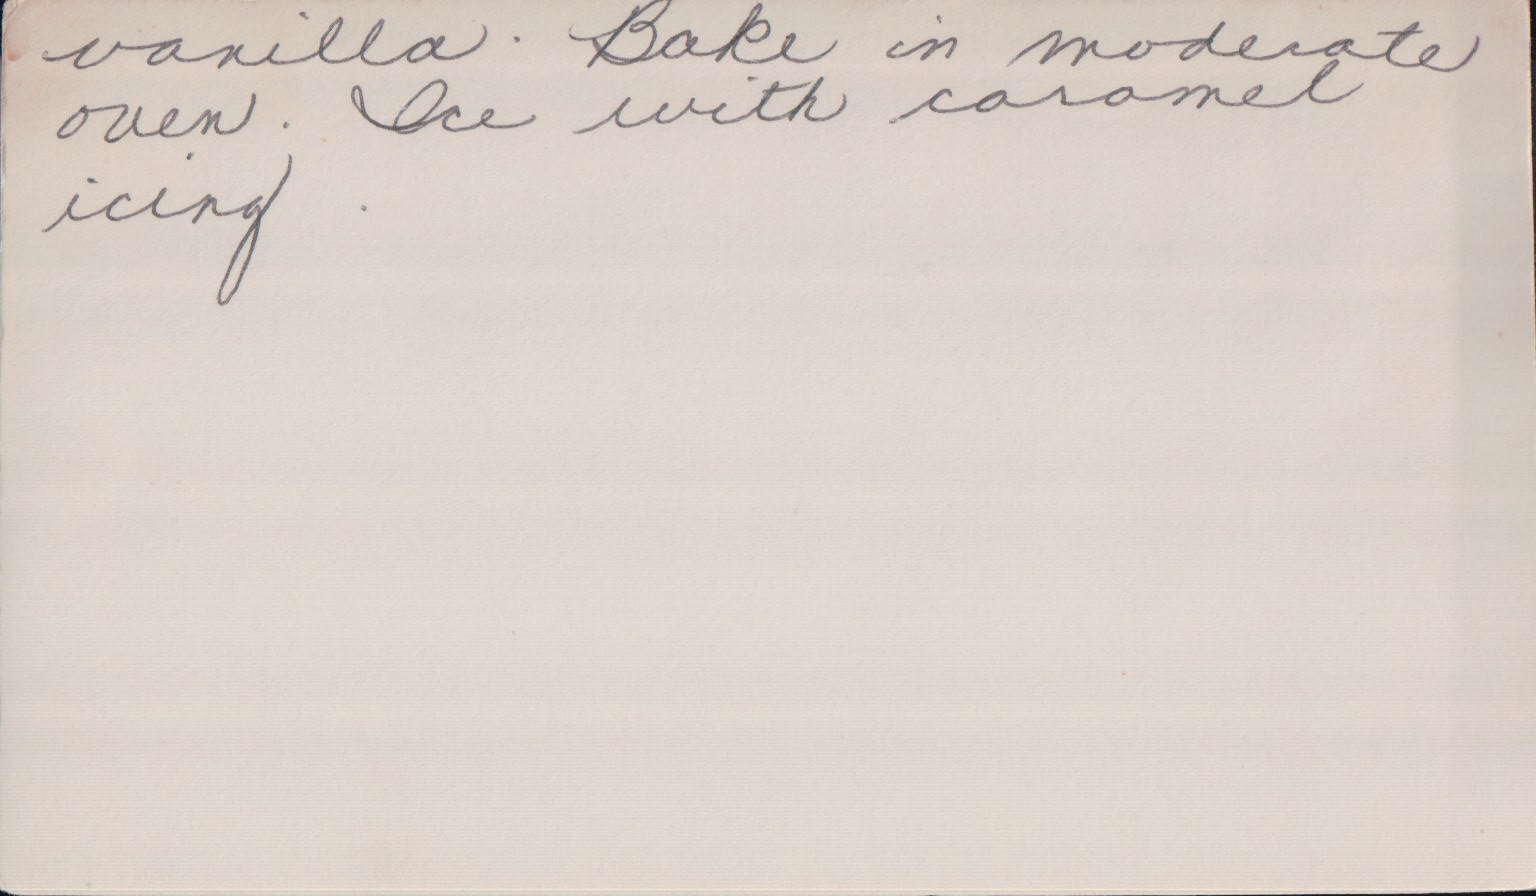 vanilla. Bake in moderate
oven. Ice with caramel
icing.